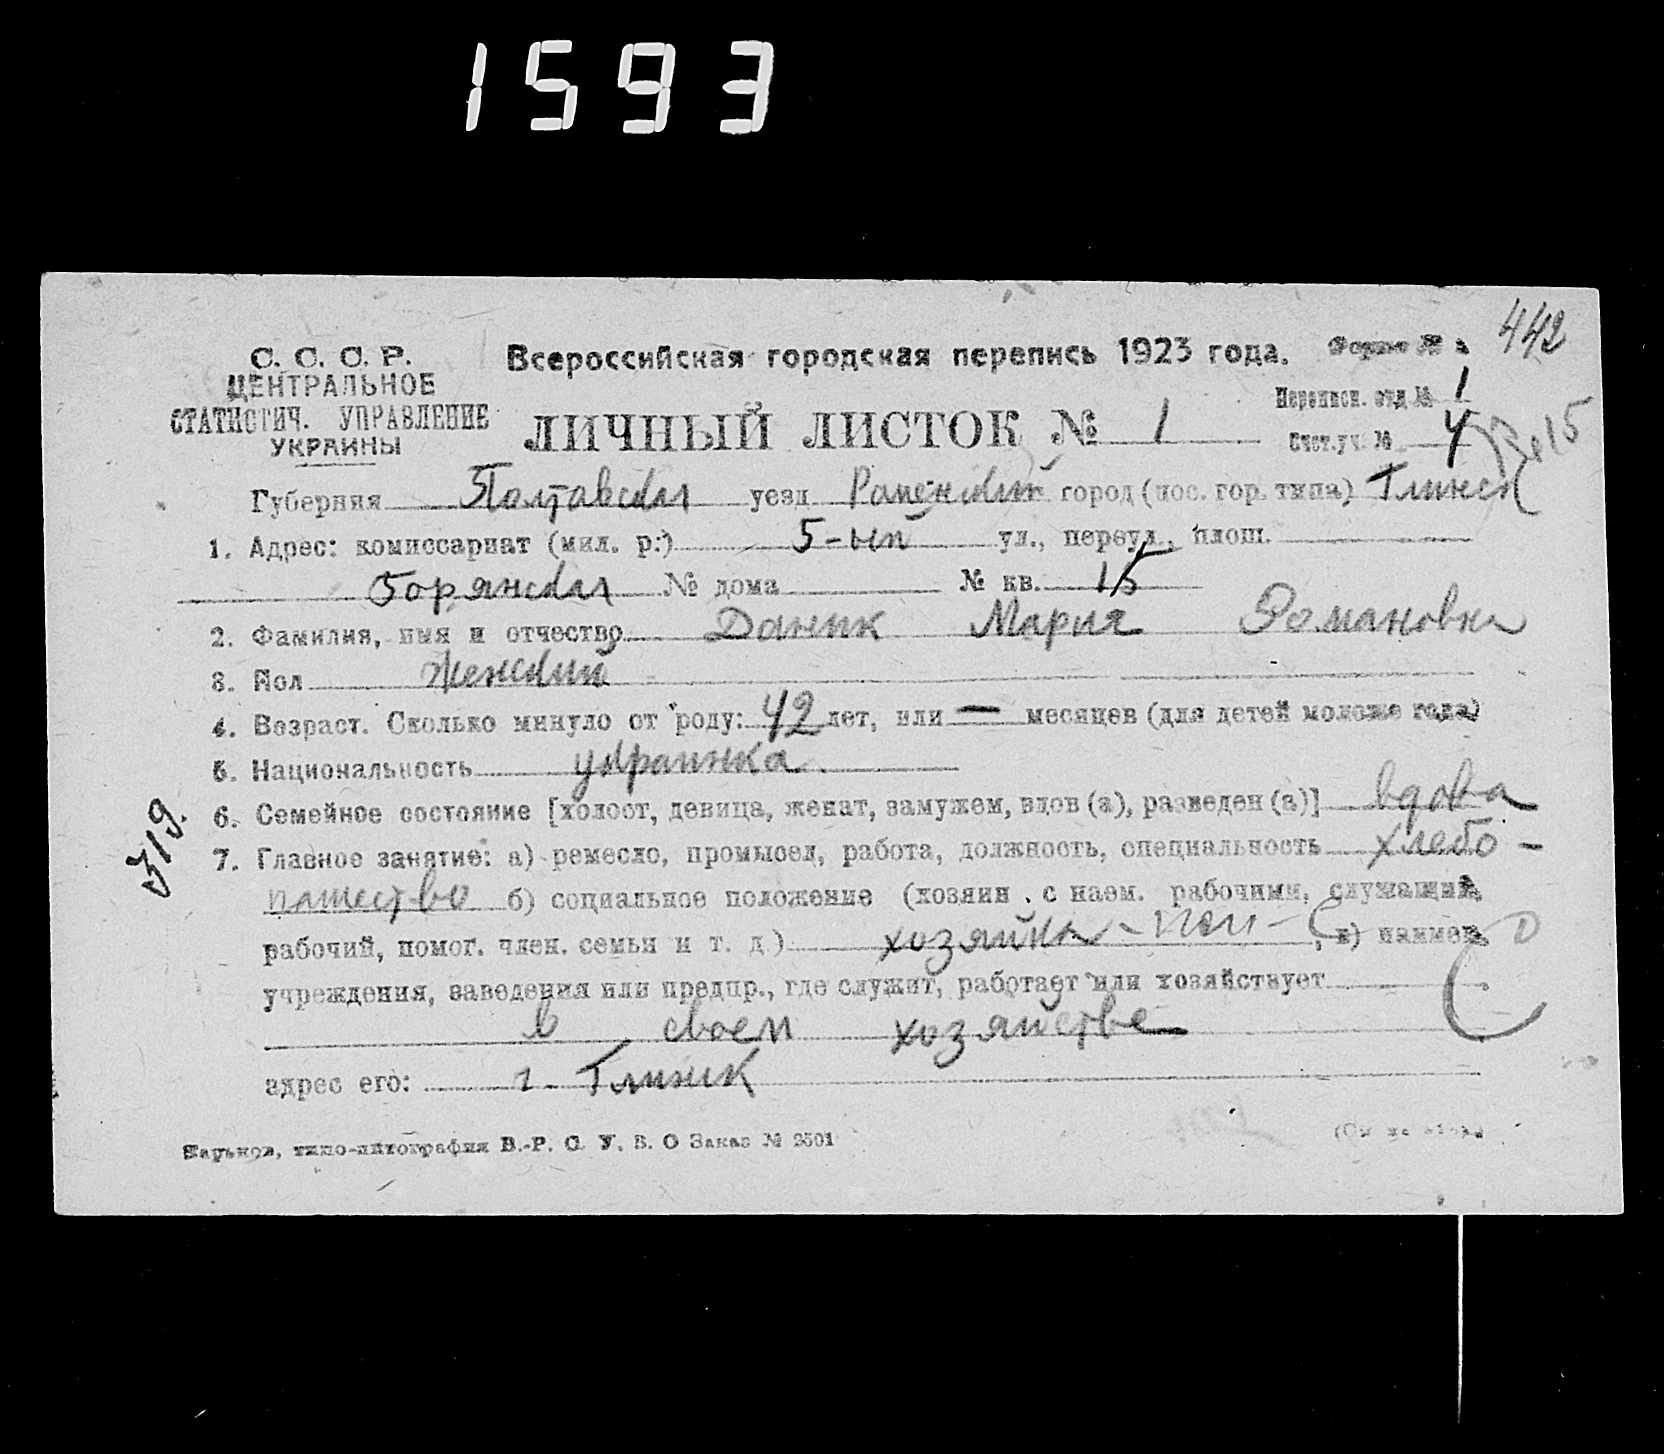 1593
442
С. С. С. Р. Всероссийская городская перепись 1923 года. Форма №
ЦЕНТРАЛЬНОЕ Переписн. отд. № 1
СТАТИСТИЧ. УПРАВЛЕНИЕ ЛИЧНЫЙ ЛИСТОК № 1 Счет. уч. № 4
УКРАИНЫ
Губерния Полтавская уезд Роменский город (пос. гор. типа) Глинск
1. Адрес: комиссариат (мил. р.) 5-ый ул., переул., площ.
Борянская № дома № кв. 15
2. Фамилия, имя и отчество Даник Мария Романовна
3. Пол Женский
4. Возраст. Сколько минуло от роду: 42 лет, или — месяцев (для детей моложе года)
5. Национальность украинка
6. Семейное состояние [холост, девица, женат, замужем, вдов (а), разведен (а)] вдова
319.
7. Главное занятие: а) ремесло, промысел, работа, должность, специальность хлебо-
пашество б) социальное положение (хозяин с наем. рабочими, служащий,
рабочий, помог. член. семьи и т. д.) хозяйка , в) наимен.
учреждения, заведения или предпр., где служит, работает или хозяйствует
в своем хозяйстве
адрес его: г. Глинск
Харьков, типо-литография В.-Р. С. У. В. О Заказ № 2501